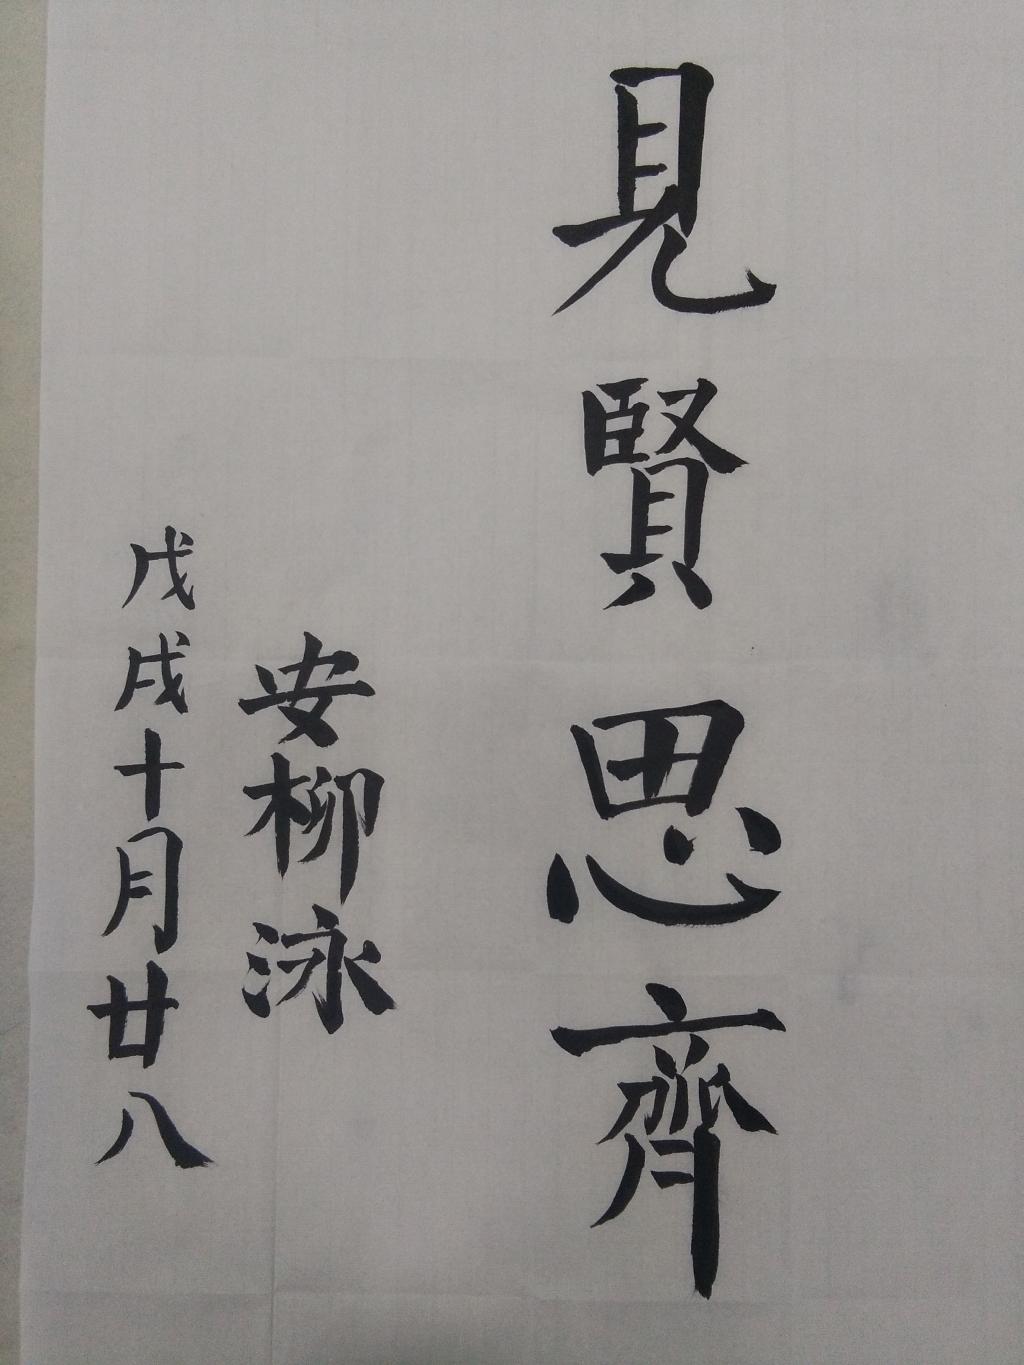 見賢思齊
安柳泳
戊戌十月廿八